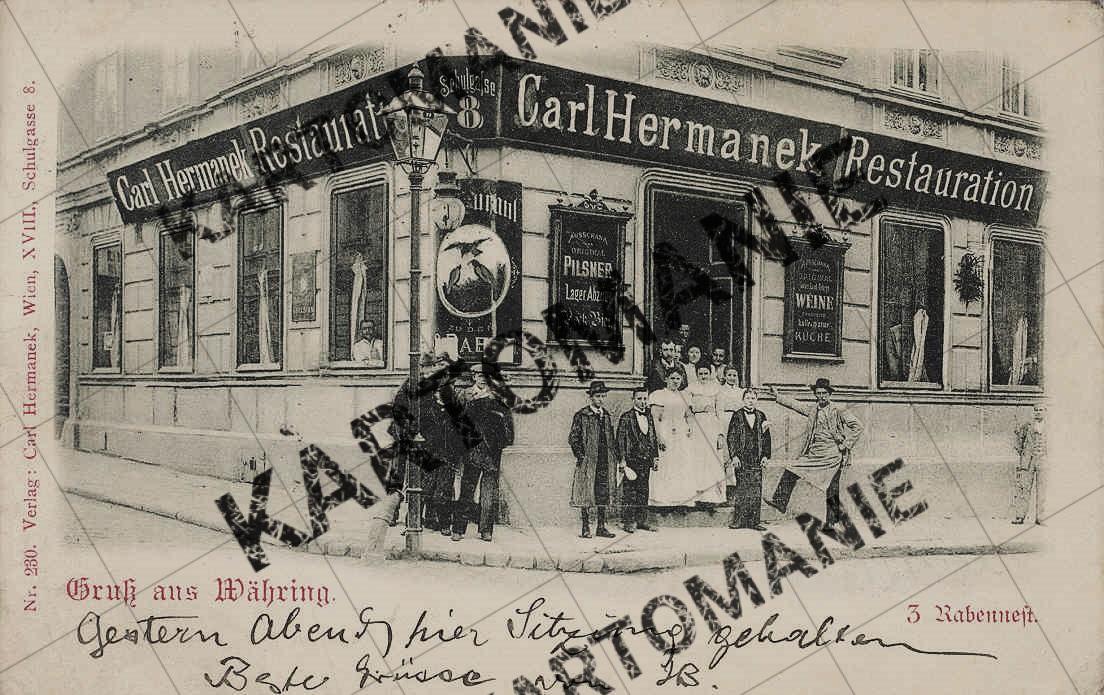 Carl Hermanek Restauration
Schulgasse
8
Carl Hermanek Restauration
AUSSCHANK
ORIGINAL
PILSNER
Lager
AUSSCHANK
WEINE
KÜCHE
ZU DEN
Nr. 230. Verlag: Carl Hermanek, Wien, XVIII., Schulgasse 8.
Gruß aus Währing.
3 Rabennest.
Gestern Abend hier Sitzung gehalten
Beste Grüsse von
KARTOMANIE
KARTOMANIE
KARTOMANIE
KARTOMANIE
KARTOMANIE
KARTOMANIE